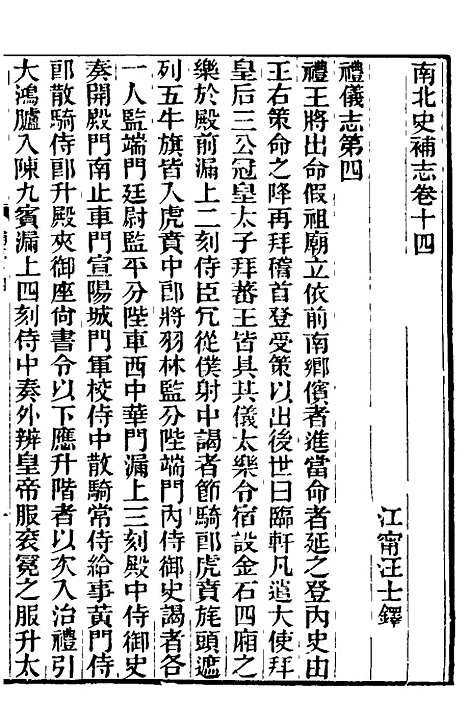 南北史補志卷十四
江甯汪士鐸
禮儀志第四
禮王將出命假祖廟立依前南鄉儐者進當命者延之登內史由
王右策命之降再拜稽首登受策以出後世曰臨軒凡遣大使拜
皇后三公冠皇太子拜蕃王皆具其儀太樂令宿設金石四廂之
樂於殿前漏上二刻侍臣冗從僕射中謁者節騎郎虎賁旄頭遮
列五牛旗皆入虎賁中郎將羽林監分陛端門內侍御史謁者各
一人監端門廷尉監平分陛東西中華門漏上三刻殿中侍御史
奏開殿門南止車門宣陽城門軍校侍中散騎常侍給事黃門侍
郎散騎侍郎升殿夾御座尙書令以下應升階者以次入治禮引
大鴻臚入陳九賓漏上四刻侍中奏外辦皇帝服袞冕之服升太